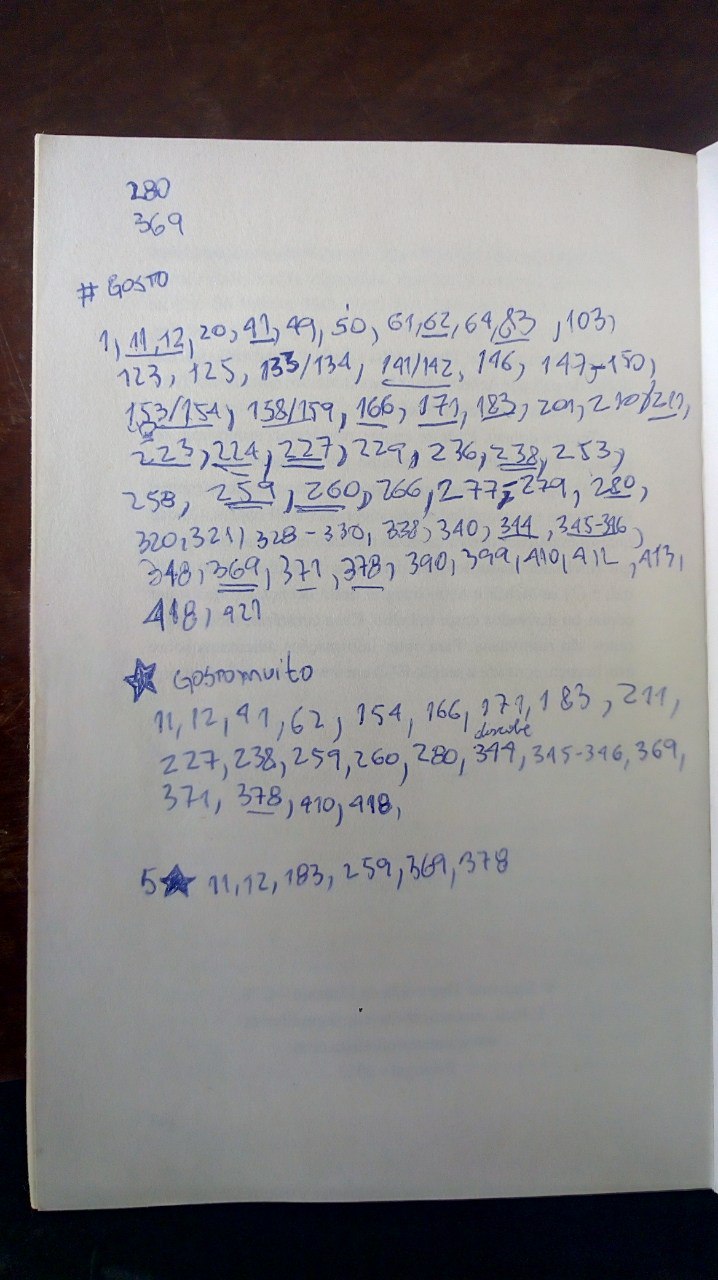 280
369
# GOSTO
1, 11, 12, 20, 41, 49, 50, 61, 62, 64, 83, 103,
123, 125, 133/134, 141/142, 146, 147-150,
153/154, 158/159, 166, 171, 183, 201, 210/211,
223, 224, 227, 229, 236, 238, 253,
258, 259, 260, 266, 277-279, 280,
320, 321, 328-330, 338, 340, 344, 345-346,
348, 369, 371, 378, 390, 399, 410, 412, 413,
418, 421
★ GOSTO muito
11, 12, 41, 62, 154, 166, 171, 183, 211,
227, 238, 259, 260, 280, 344, 345-346, 369,
371, 378, 410, 418,
5★ 11, 12, 183, 259, 369, 378